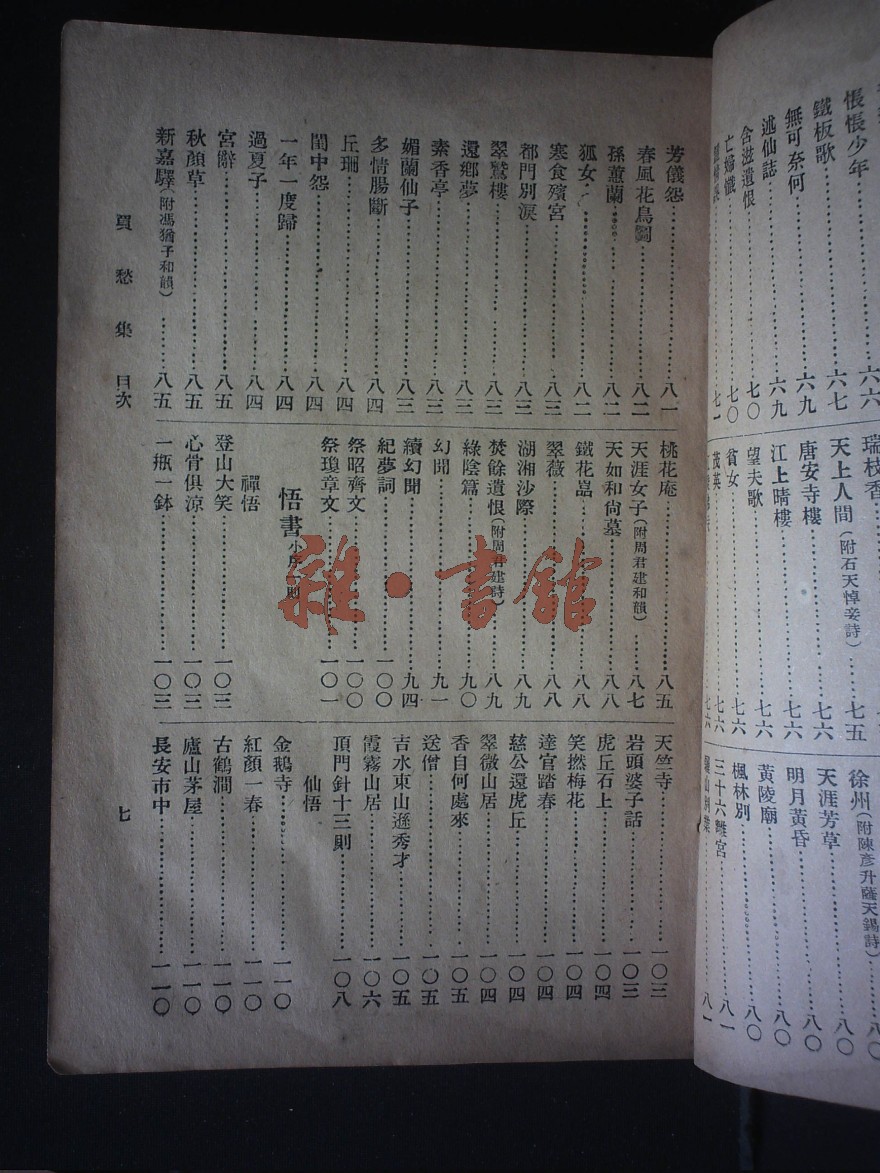 悵悵少年……六六
鐵板歌……六七
無可奈何……六九
述仙誌……六九
含滋遺恨……七〇
亡婦懺……七〇
七一
瑞枝香
天上人間(附石天悼妾詩)……七五
唐安寺樓……七六
江上晴樓……七六
望夫歌……七六
貧女……七六
茂英……七六
七六
徐州(附陳彥升薩天錫詩)……八〇
天涯芳草……八〇
明月黃昏……八〇
黃陵廟……八〇
楓林別……八〇
三十六離宮……八一
八一
芳儀怨……八一
春風花鳥圖……八二
孫蕙蘭……八二
狐女……八二
寒食殯宮……八三
都門別淚……八三
翠鴛樓……八三
還鄉夢……八三
素香亭……八三
媚蘭仙子……八三
多情腸斷……八四
丘珊……八四
閨中怨……八四
一年一度歸……八四
過夏子……八四
宮辭……八五
秋顏草……八五
新嘉驛(附馮猶子和韻)……八五
桃花庵……八五
天涯女子(附周君建和韻)……八七
天如和尙墓……八八
鐵花嵓……八八
翠薇……八八
湖湘沙際……八九
焚餘遺恨(附周君建詩)……八九
綠陰篇……九〇
幻聞……九一
續幻聞……九四
紀夢詞……一〇〇
祭昭齊文……一〇〇
祭瓊章文……一〇一
悟書 小則
禪悟
登山大笑……一〇三
心骨俱涼……一〇三
一瓶一鉢……一〇三
天竺寺……一〇三
岩頭婆子話……一〇三
虎丘石上……一〇四
笑撚梅花……一〇四
達官踏春……一〇四
慈公還虎丘……一〇四
翠微山居……一〇四
香自何處來……一〇五
送僧……一〇五
吉水東山遜秀才……一〇五
霞霧山居……一〇六
頂門針十三則……一〇八
仙悟
金鵝寺……一一〇
紅顏一春……一一〇
古鶴澗……一一〇
廬山茅屋……一一〇
長安市中……一一〇
買愁集 目次
七
雜·書館